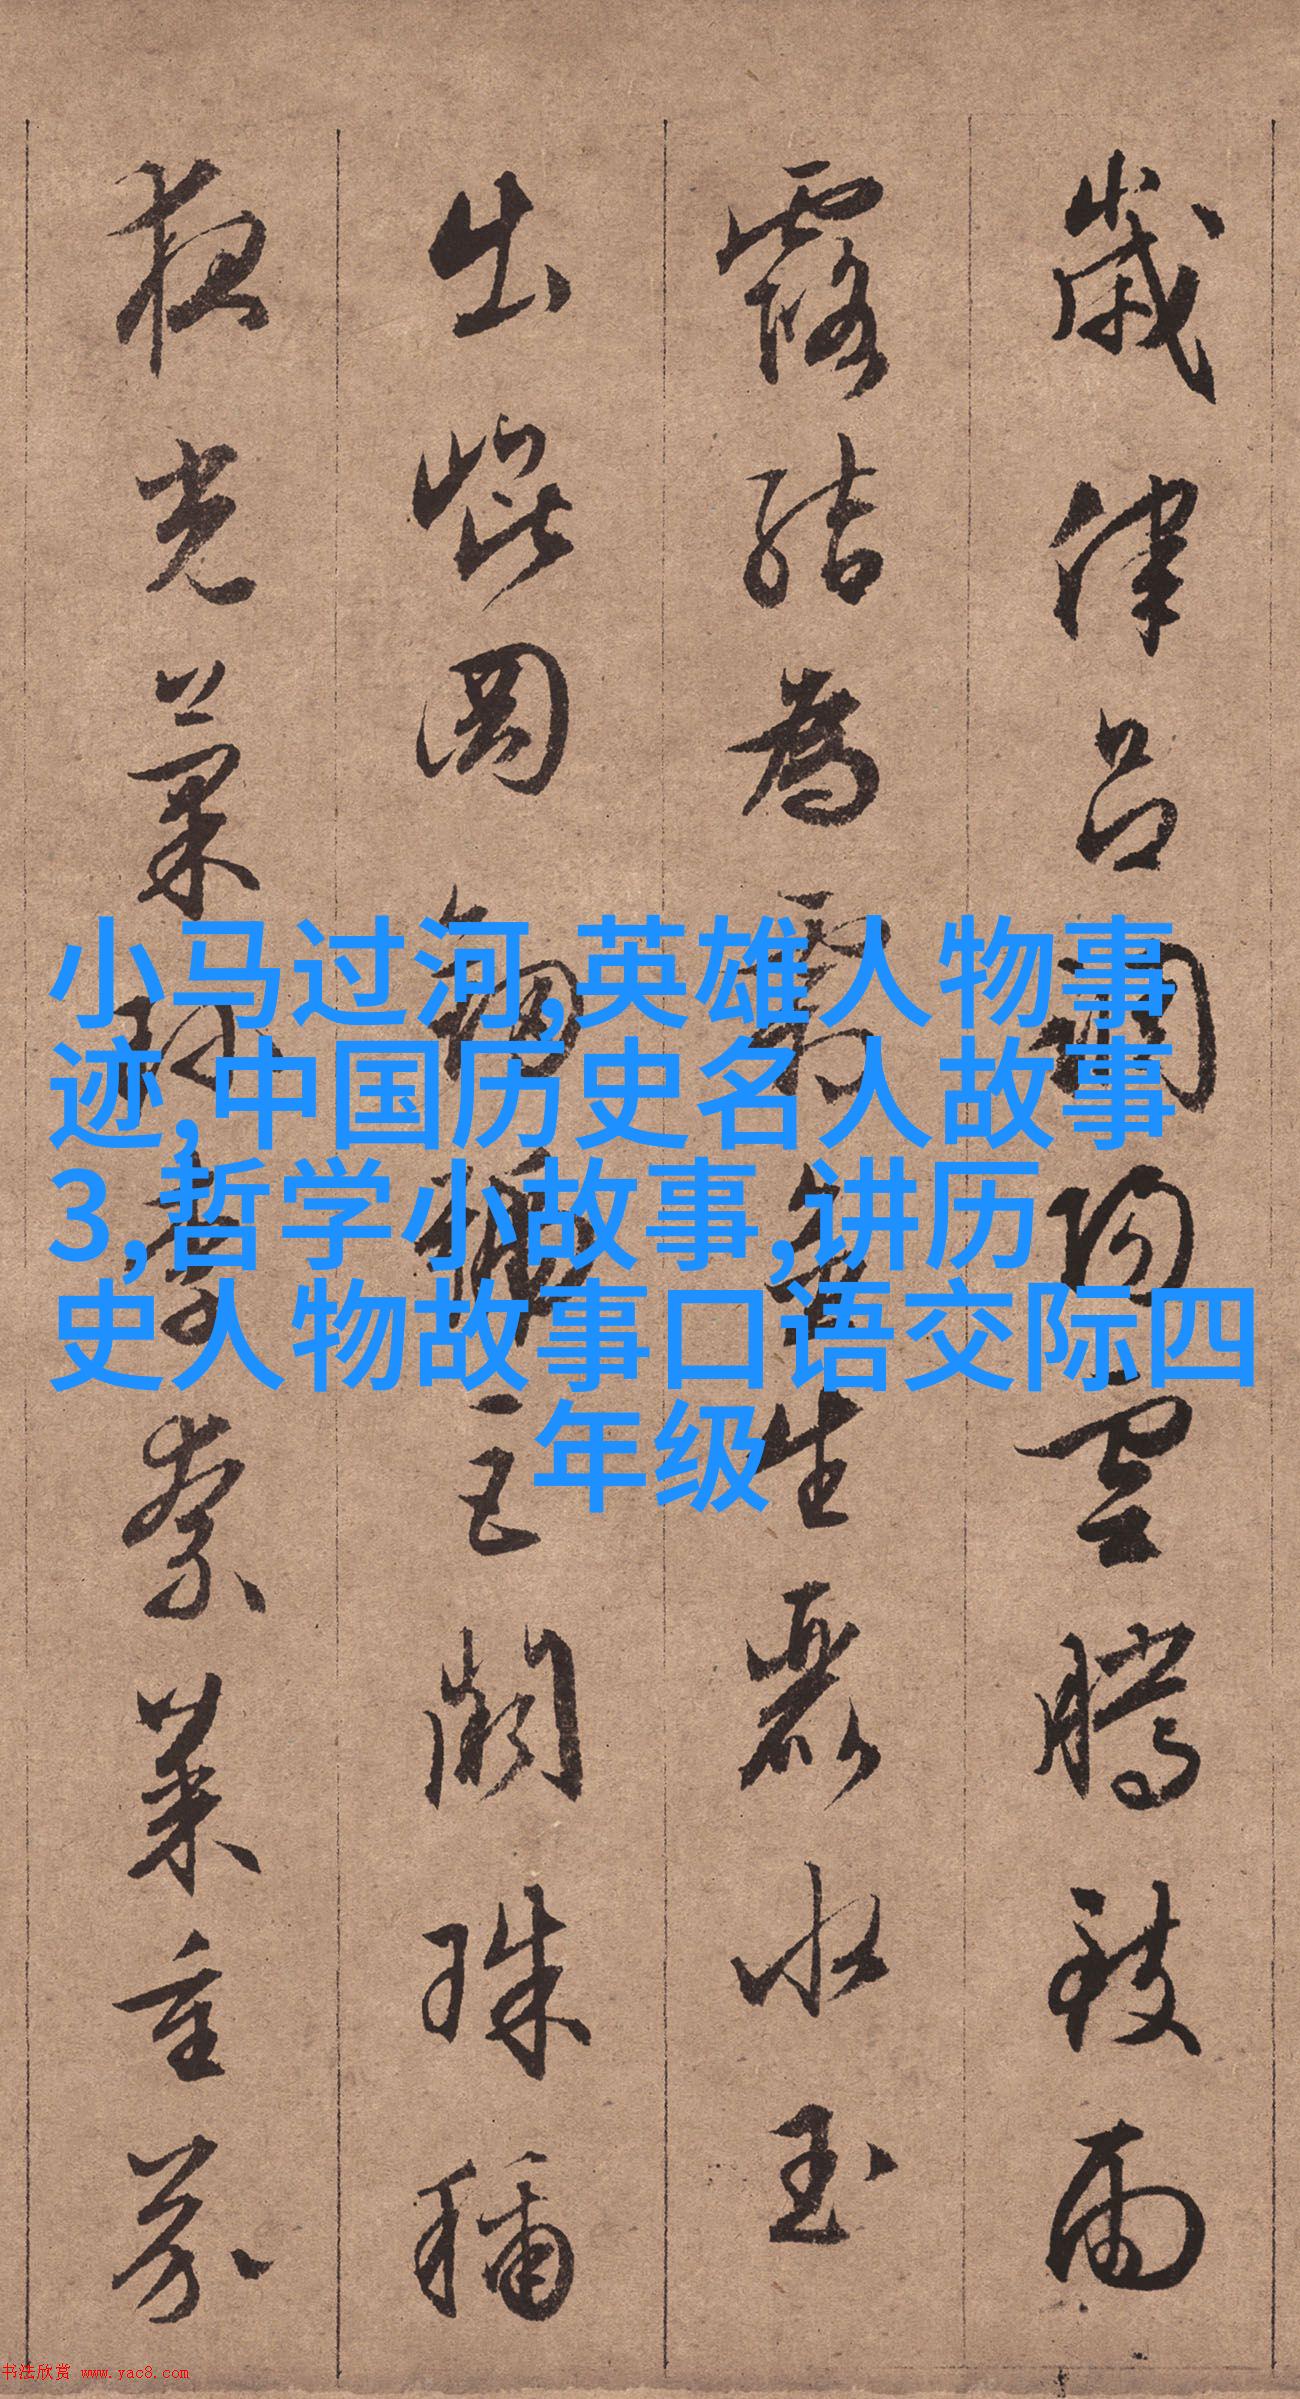 歲律呂調陽雲騰致雨
露結為霜金生麗水玉
出崐岡劒號巨闕珠稱
夜光菓珍李柰菜重芥
小马过河,英雄人物事
迹,中国历史名人故事
3,哲学小故事,讲历
史人物故事口语交际四
年级
书法欣赏 www.yac8.com